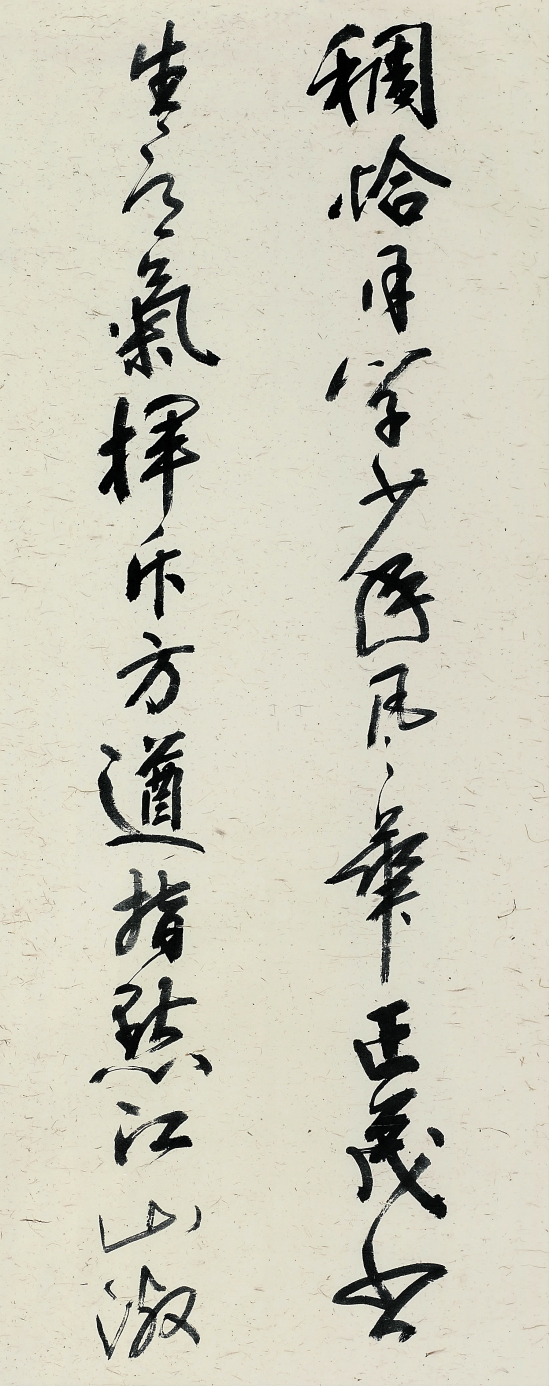 稠恰同學少年風華正茂書
生意氣揮斥方遒指點江山激